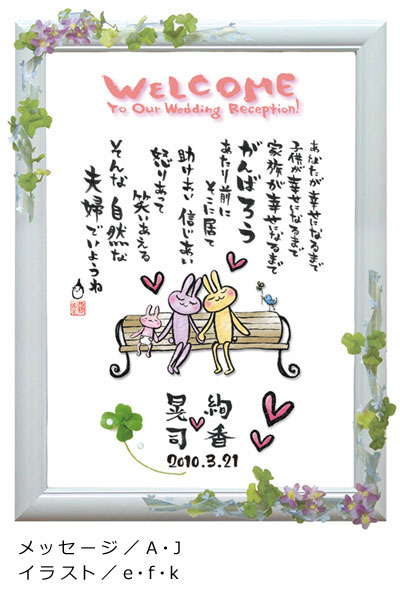 WELCOME
To Our Wedding Reception!
あなたが幸せになるまで
子供が幸せになるまで
家族が幸せになるまで
がんばろう
あたり前に
そこに居て
助けあい信じあい
怒りあって
笑いあえる
そんな自然な
夫婦でいようね
絢香
晃司
2010.3.21
メッセージ／A・J
イラスト／e・f・k